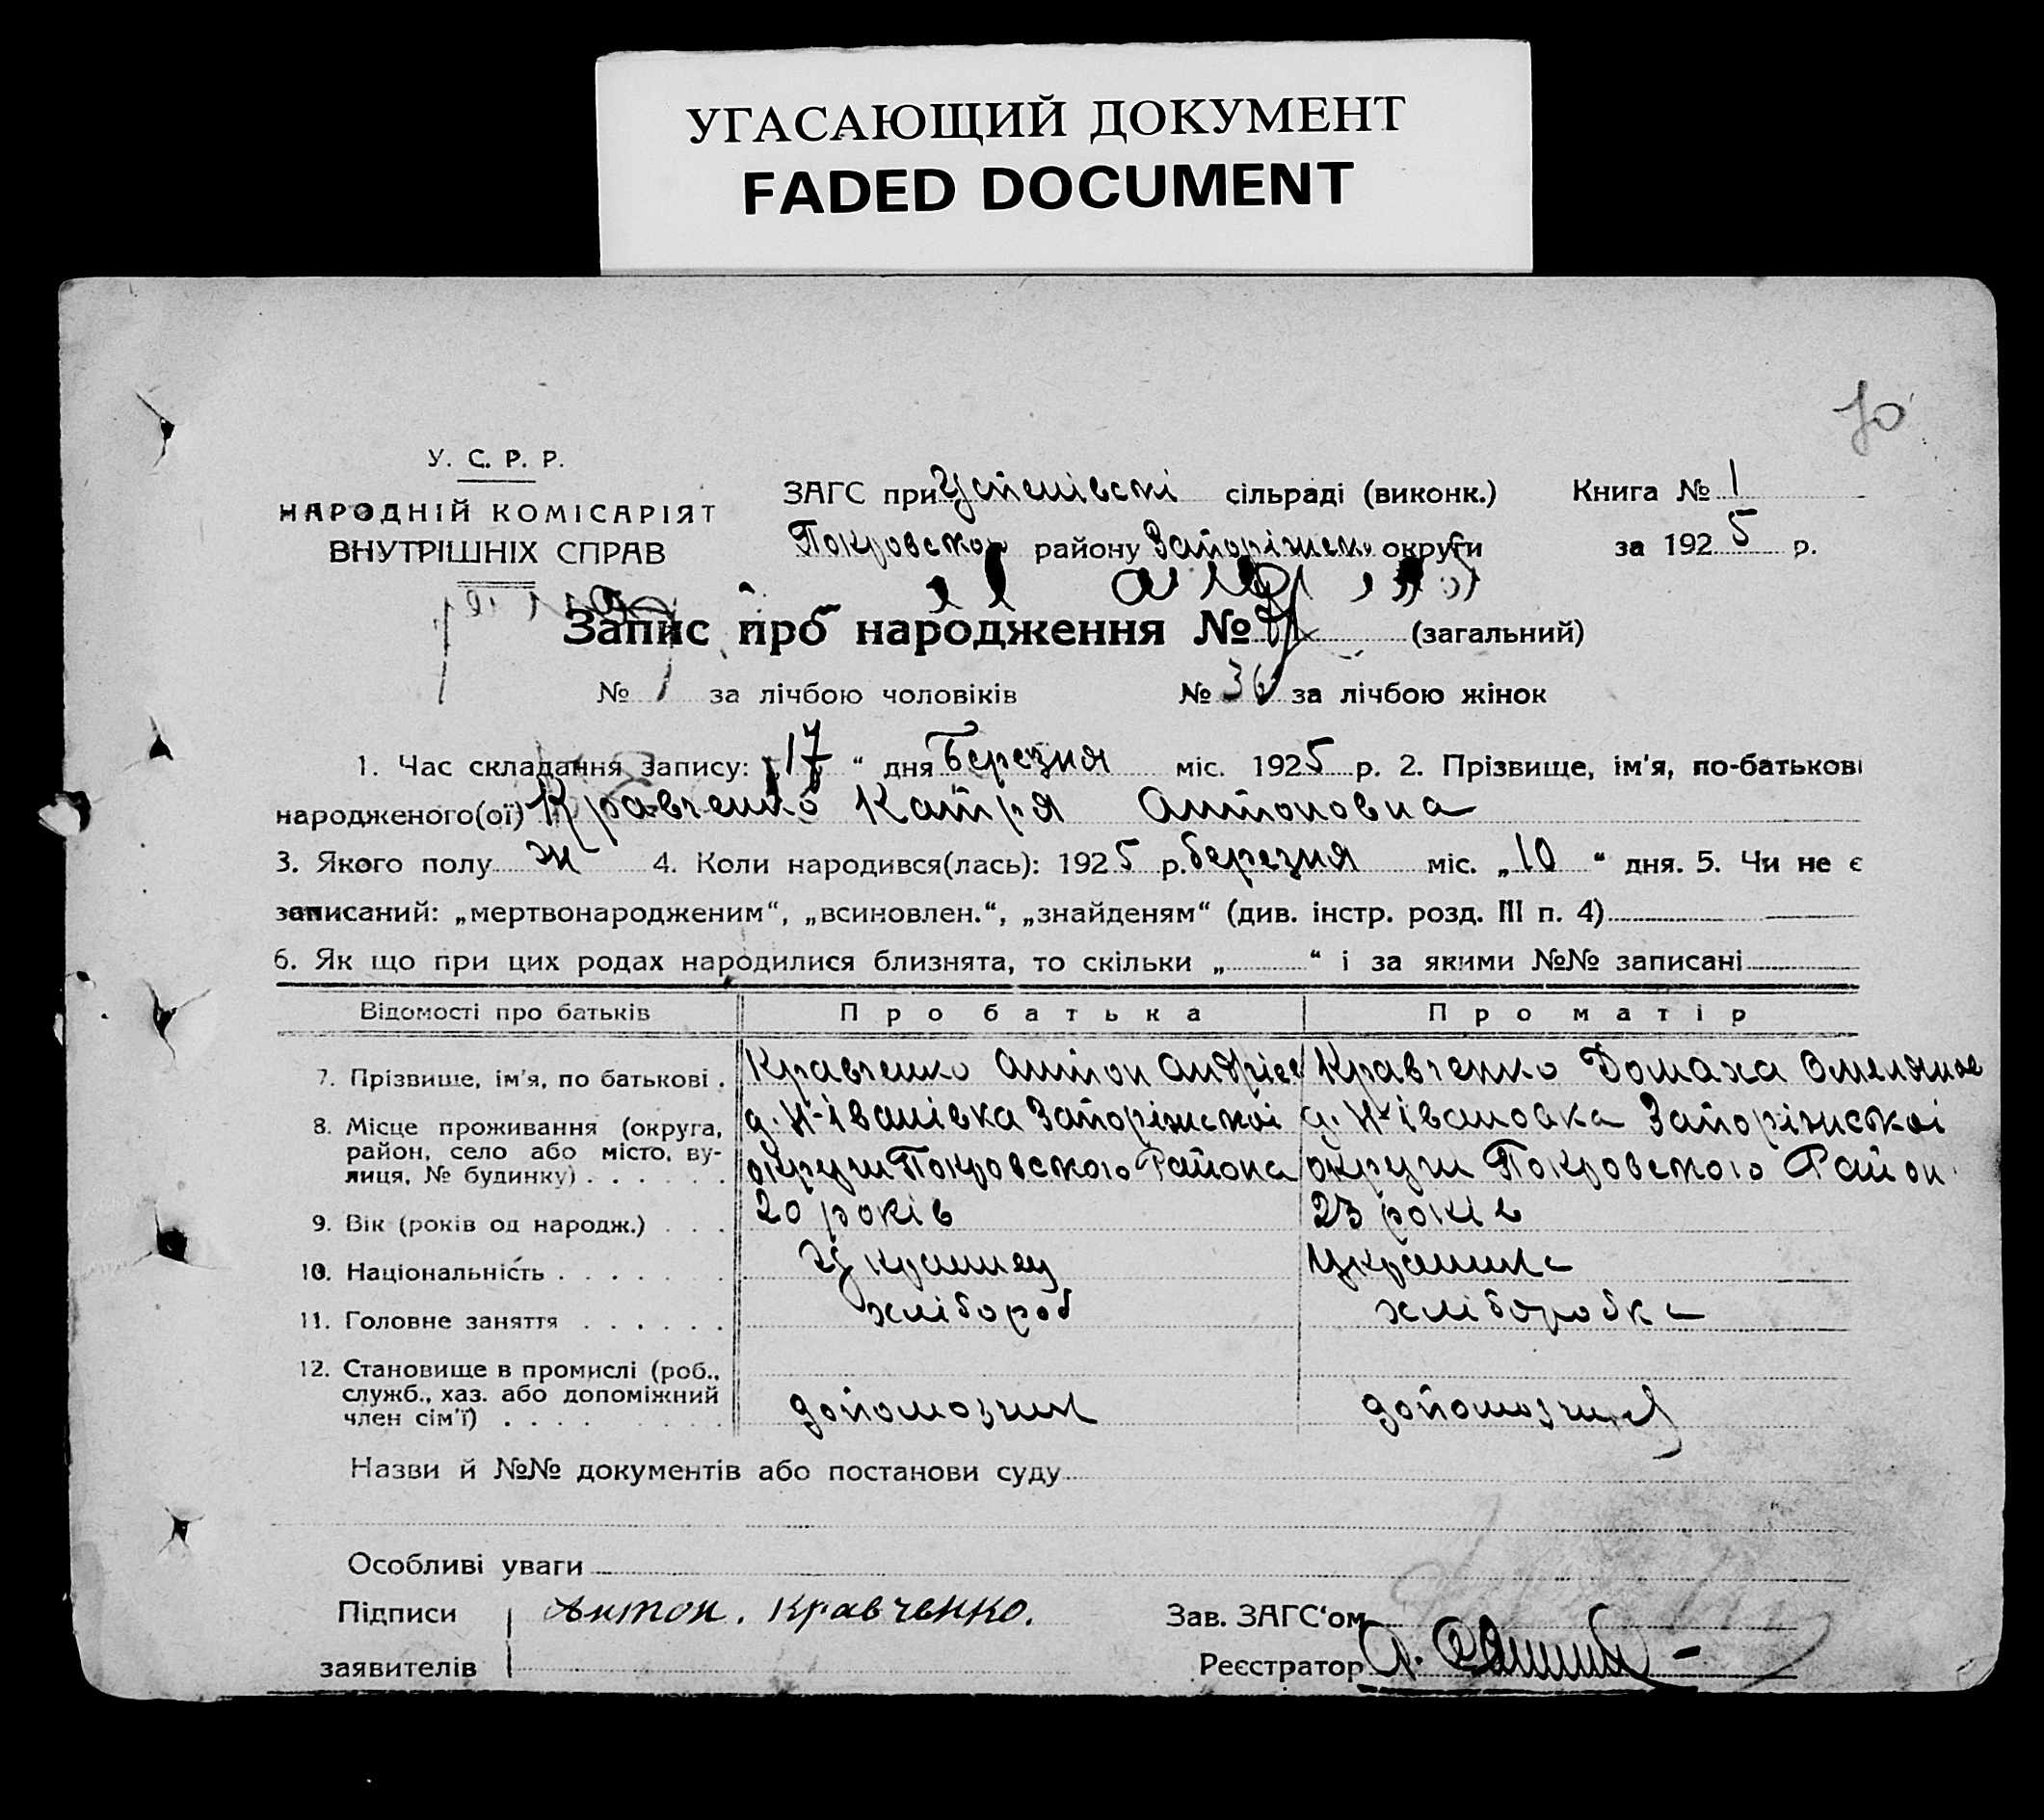 УГАСАЮЩИЙ ДОКУМЕНТ
FADED DOCUMENT
У. С. Р. Р.
НАРОДНІЙ КОМІСАРІЯТ
ВНУТРІШНІХ СПРАВ
ЗАГС при Успенівскі сільраді (виконк.) Книга № 1
Покровског району Запоріжськ округи за 1925 р.
Запис про народження № (загальний)
№ за лічбою чоловіків № 36 за лічбою жінок
1. Час складання запису: „17“ дня Березня міс. 1925 р. 2. Прізвище, ім'я, по-батькові
народженого(ої) Кравченко Катря Антоновна
3. Якого полу ж 4. Коли народився(лась): 1925 р. березня міс. „10“ дня. 5. Чи не є
записаний: „мертвонародженим“, „всиновлен.“, „знайденям“ (див. інстр. розд. III п. 4)
6. Як що при цих родах народилися близнята, то скільки „ “ і за якими №№ записані
Відомості про батьків Про батька Про матір
7. Прізвище, ім'я, по батькові . Кравченко Антон Андрієв Кравченко Домаха Омеляное
8. Місце проживання (округа, район, село або місто, вулиця, № будинку) . . . . . .
д. Н-Іванівка Запоріжскоі д. Н-Івановка Запоріжскоі
округи Покровского Района округи Покровского Район
9. Вік (років од народж.) . . . 20 років 23 років
10. Національність . . . . . . . Украинец Украинка
11. Головне заняття . . . . . . хлібороб хліборобка
12. Становище в промислі (роб., служб., хаз. або допоміжний член сім'ї) . . . . . . . . . допомозчик допомозчица
Назви й №№ документів або постанови суду
Особливі уваги
Підписи Антон. Кравченко. Зав. ЗАГС'ом
заявителів Реєстратор